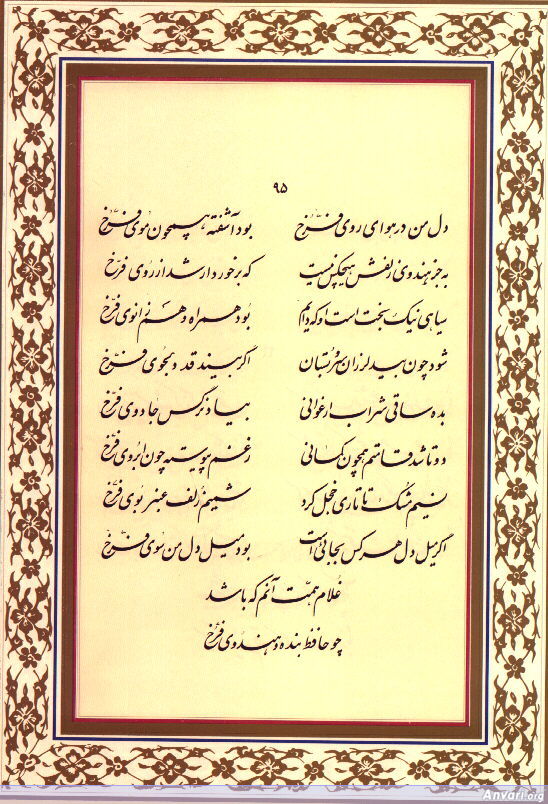 ۹۵
دل من در هوای روی فرّخ بود آشفته همچون موی فرّخ
به جز هندوی زلفش هیچکس نیست که برخوردار شد از روی فرّخ
سیاهی نیک بخت است او که دایم بود همراه و هم زانوی فرّخ
شود چون بید لرزان سرو بستان اگر بیند قد دلجوی فرّخ
بده ساقی شراب ارغوانی بیاد نرگس جادوی فرّخ
دوتا شد قامتم همچون کمانی ز غم پیوسته چون ابروی فرّخ
نسیم مشک تاتاری خجل کرد شمیم زلف عنبر بوی فرّخ
اگر میل دل هر کس بجائی است بود میل دل من سوی فرّخ
غلام همت آنم که باشد
چو حافظ بنده و هندوی فرّخ
Anvari.org